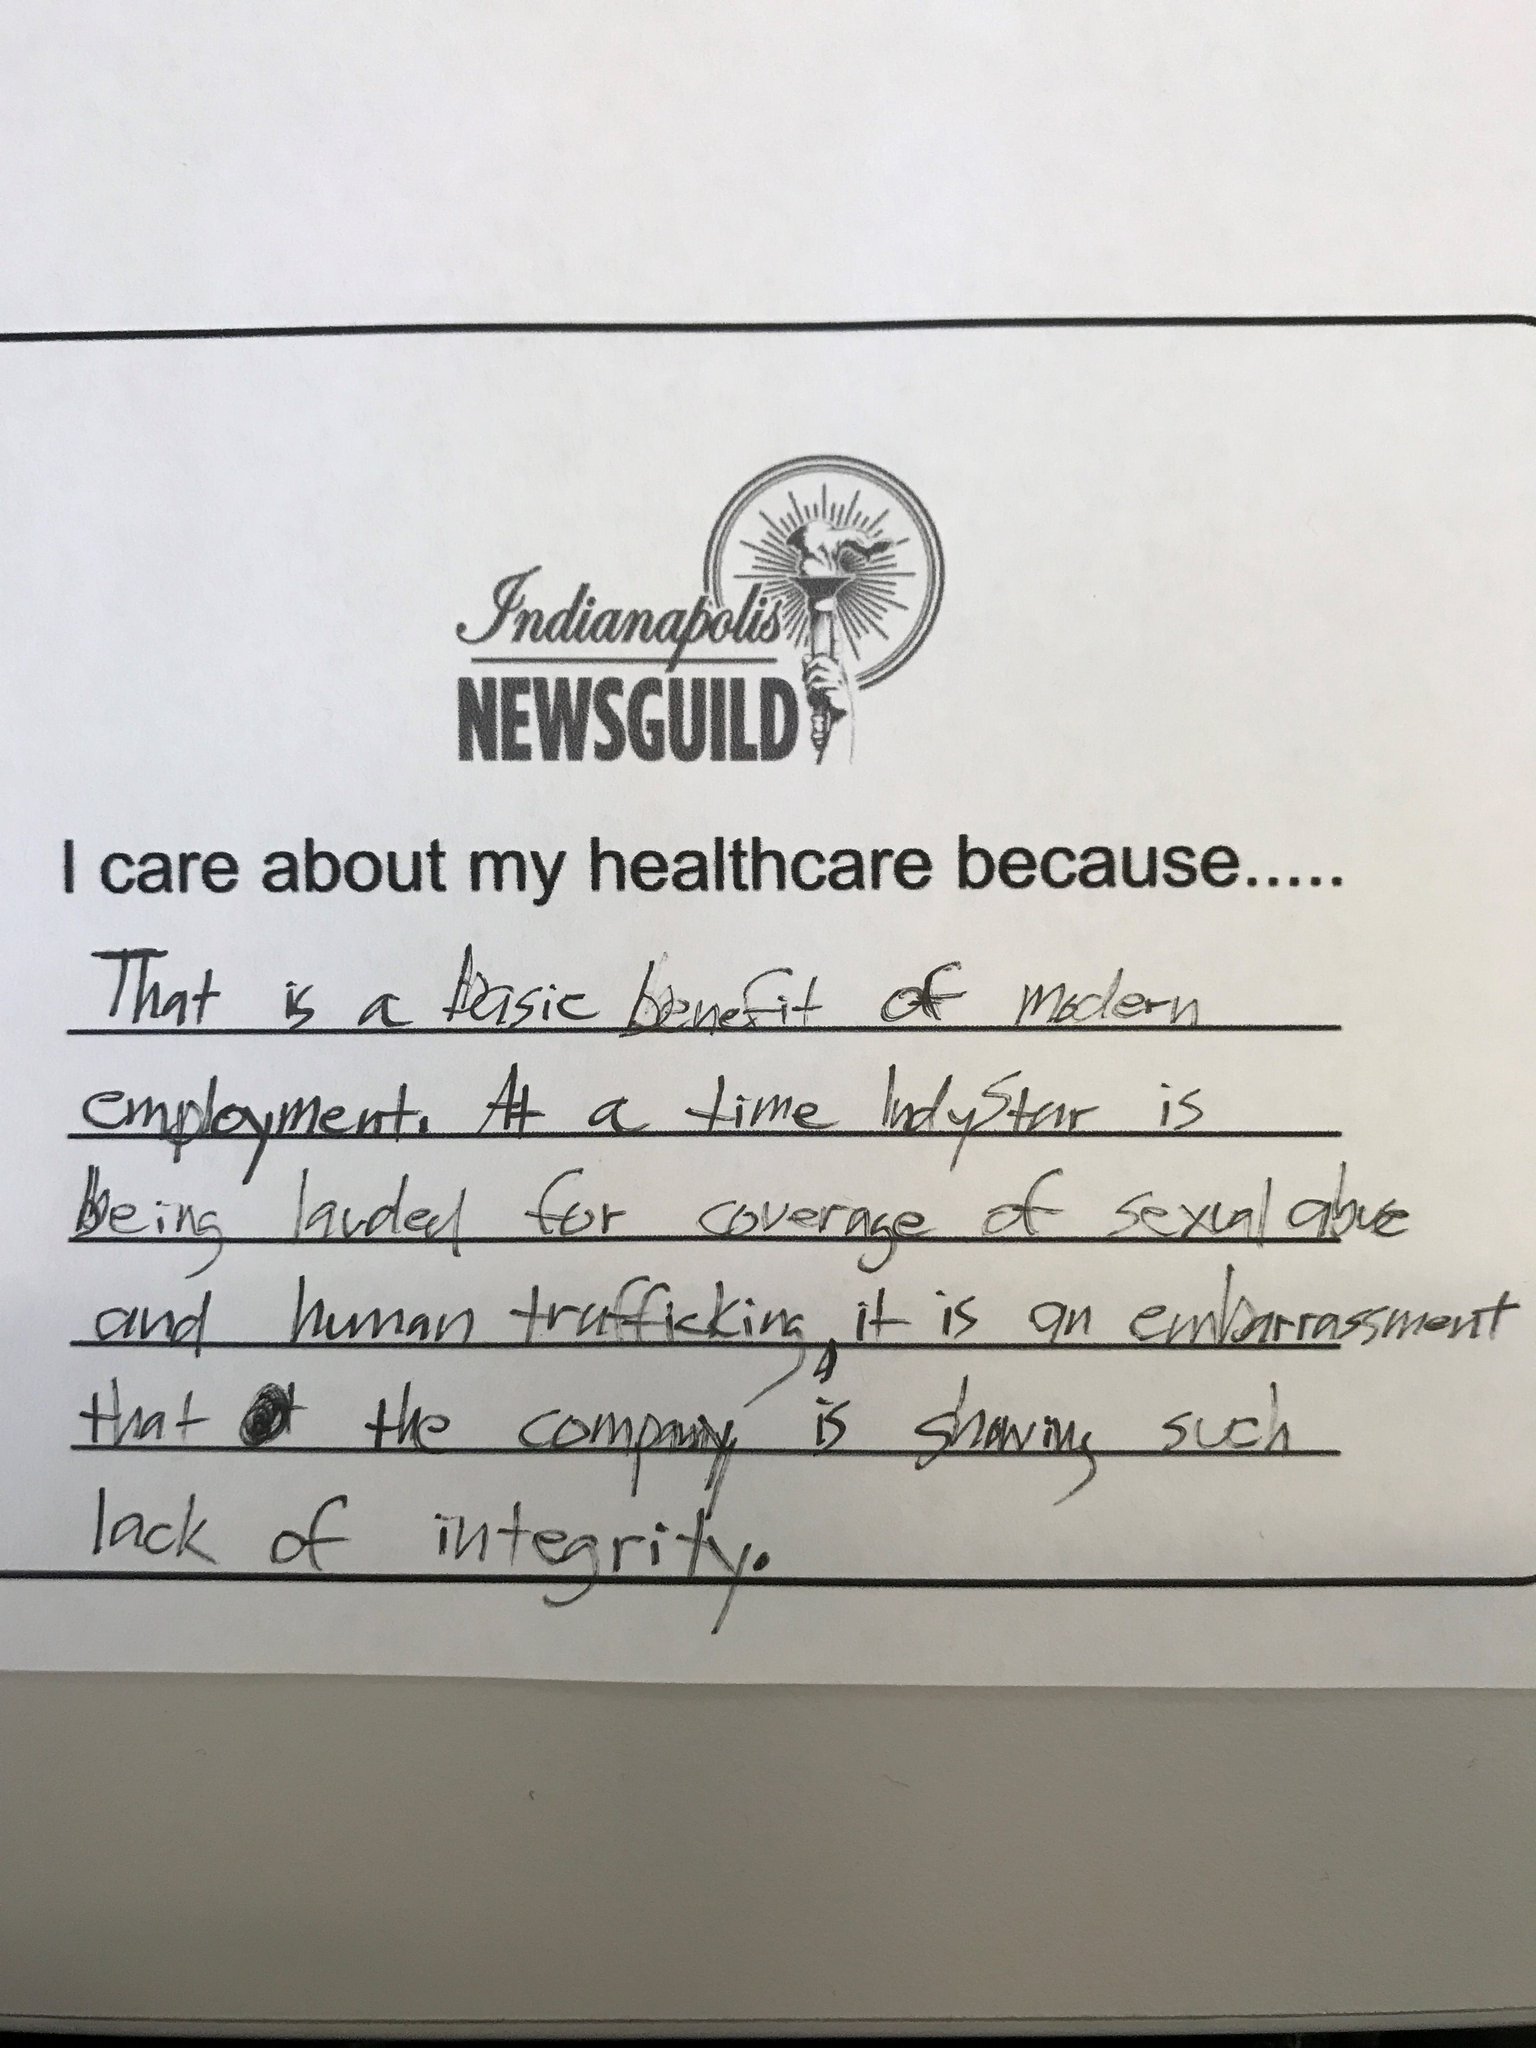 Indianapolis
NEWSGUILD
I care about my healthcare because.....
That is a basic benefit of modern
employment. At a time IndyStar is
being lauded for coverage of sexual abuse
and human trafficking, it is an embarrassment
that the company is showing such
lack of integrity.